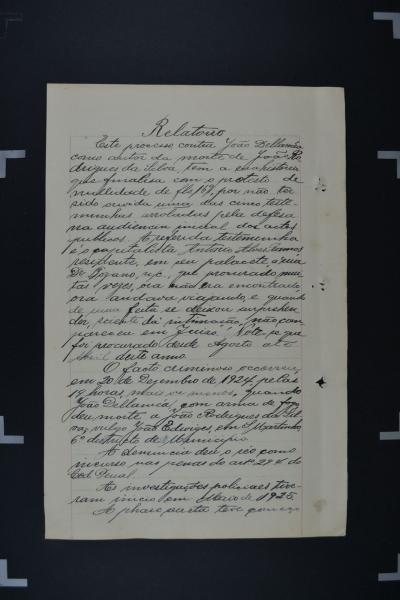 Relatorio
Este processo contra João Dellamea
como autor da morte de João Ro-
drigues da Silva, tem a sua historia
que finalisa com o protesto de
nullidade de fls 169, por não ter
sido ouvida uma das cinco teste-
munhas arroladas pela defesa
na audiencia inicial dos actos
publicos. A referida testemunha
é o capitalista Antonio Alves Ramos
residente, em seu palacete á rua
Dr Bozano, n/c, que procurado, mui-
tas vezes, ora não era encontrado,
ora andava viajando, e quando
de uma feita se deixou surprehen-
der, sciente da intimação, não com-
pareceu em Juizo. Note-se que
foi procurado desde Agosto até
Abril deste anno.
O facto criminoso occorreu
em 20 de Dezembro de 1924, pelas
19 horas, mais ou menos, quando
João Dellamea, com arma de fogo
deu morte a João Rodrigues da Sil-
va, vulgo João Edwiges, em S. Martinho,
6º districto do Municipio.
A denuncia deu o réo como
incurso nas penas do art. 294 do
Cod. Penal.
As investigações policiaes tive-
ram inicio em Março de 1925.
A phase secreta teve começo